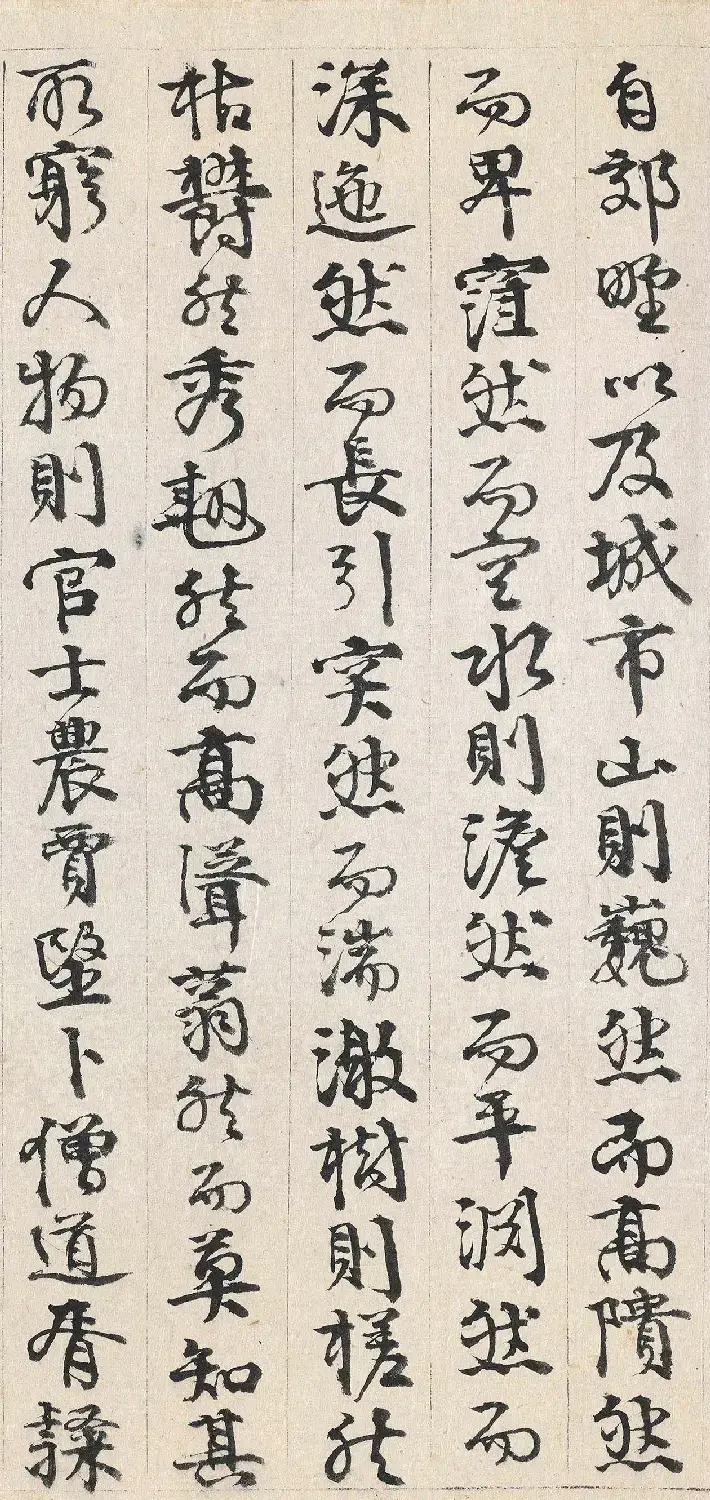 自郊野以及城市山則巍然而高隤然
而卑窪然而空水則澹然而平淵然而
深迤然而長引突然而湍激樹則槎然
枯欝然秀翹然而高聳蓊然而莫知其
所窮人物則官士農賈毉卜僧道胥隸